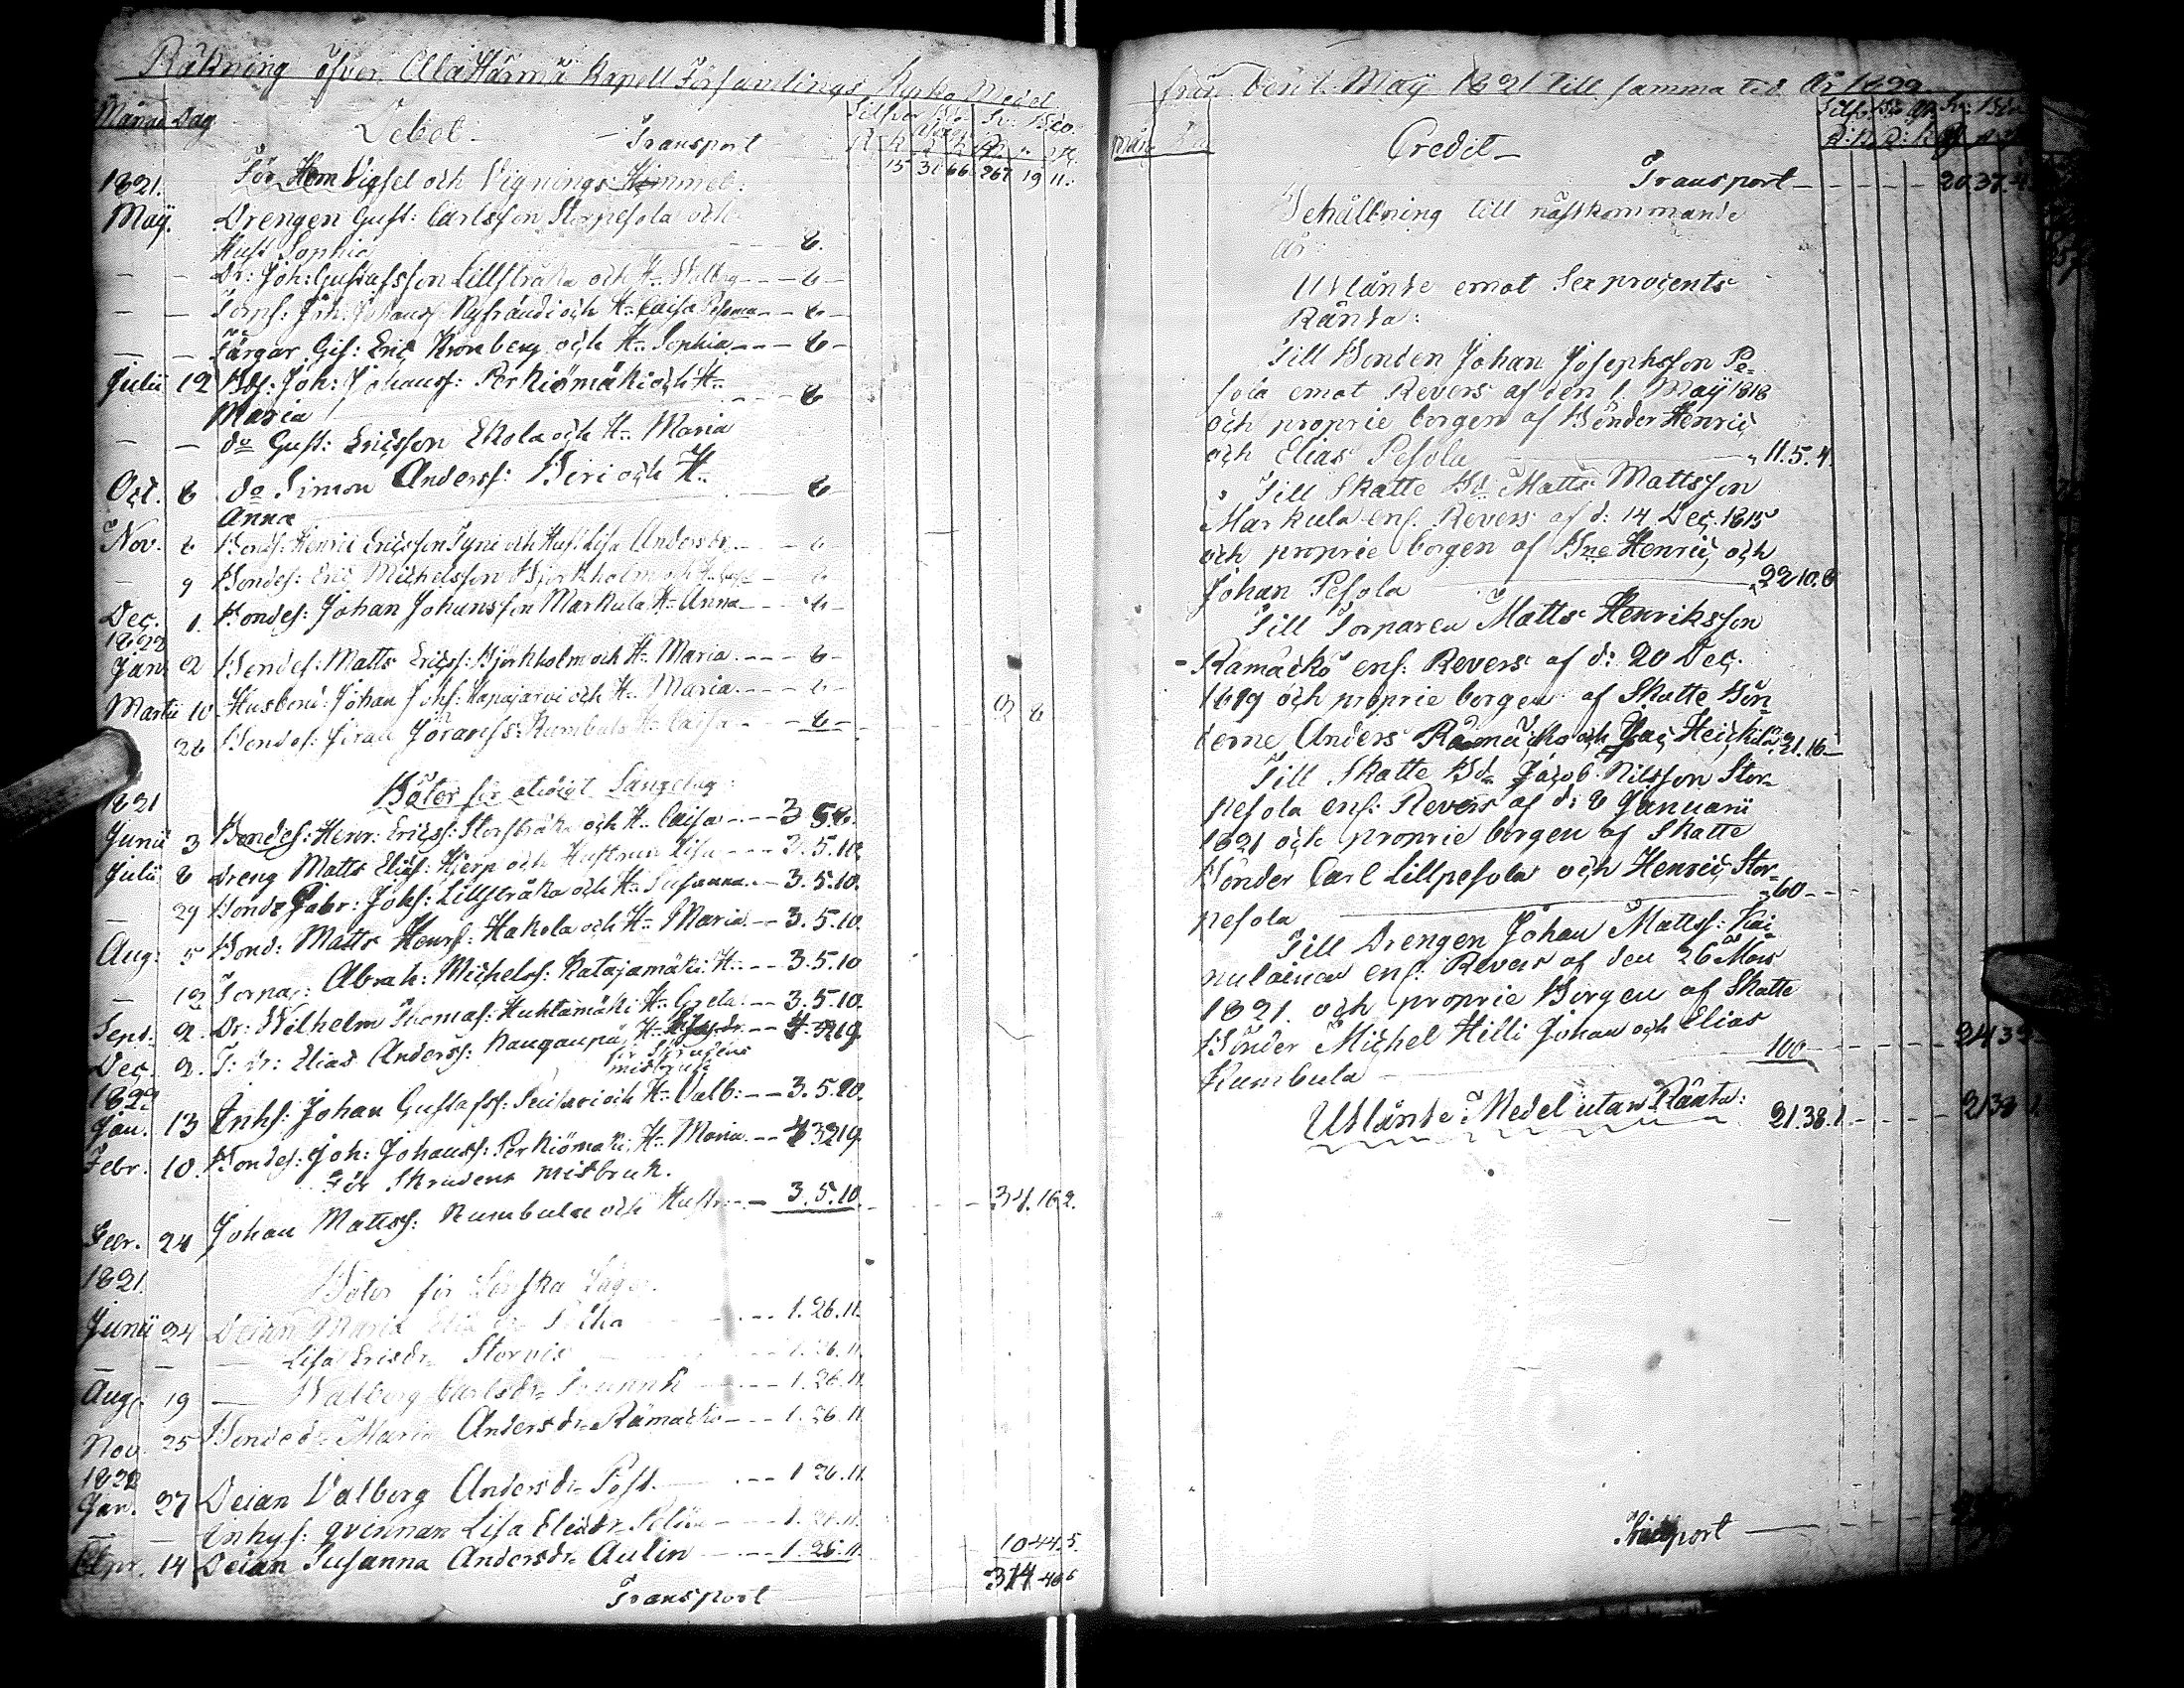 Räkning öfver Ala Härmä Kapell Församlings Kyrko Medel
Månad Dag Debet Transport
Silfver Sv. Bco.
15 31 66 267 19 11.
1821. För Hem Vigsel och Vignings Himmel:
May. Drengen Gust: Carlsson Storpesola och
Hust Sophia - - - 6.
— — Dr: Joh: Gustafsson Lillstråka och H: Walborg - - - 6 -
— — Torps: Joh: Johanss: och H: Caisa Pesoma - - 6 -
— — Färgar Gis: Eric Kronberg och H: Sophia - - - 6 -
Julii 12 Bds: Joh: Johanss: Perkiömäki och H:
Maria - - - 6
— — do Gust: Ericsson Ekola och H: Maria
Oct. 6 do Simon Anderss: Hiri och H:
Anna - - 6 -
Nov. 6 Bonds: Henric Ericsson Tyni och Hust Lisa Andersdr - - - 6
— 9 Bondes: Eric Michelsson Björkholm och - 6
Dec. 1. Bondes: Johan Johansson Markula H: Anna - - - 6 -
1822
Jan 2 Bondes: Matts Ericss: Björkholm och H: Maria - - - 6 -
Martii 10 Husbond: Johan Johs: Hapajarvi och H: Maria - - - 6 -
26 Bondes: Jöran Joranss: Kumbula H: Caisa - - - 6 - 2 6
Böter för otidigt Sängelag:
1821
Junii 3 Bondes: Henr: Ericss: Storstråka och H: Caisa - - - 3 5.10.
Julii 8 Dreng Matts Eliæs: Hjerp och Hustrun Lisa - - - 3.5.10.
— 29 Bonde Gabr: Johs: Lillstråka och H: Susanna. - - 3.5.10.
Aug: 5 Bond: Matts Henrss: Hakola och H: Maria - - 3.5.10.
— 12 Torpar: Abrah: Michelss: Katajamäki H: - - 3.5.10
Sept. 2. Dr: Wilhelm Thomas: Huhtamäki H: Greta: - - 3.5.10.
Dec. 2. T: dr: Elias Anderss: Kangaunpä H: - - 4. 32 19.
för Skrudens
misbruk
1822
Jan. 13 Inhs: Johan Gustafss: och H: Valb: - - 3.5.10.
Febr. 10. Bondes: Joh: Johanss: Perkiömäki H: Maria - - 4 32 19.
För Skrudens misbruk.
Febr. 24 Johan Matss: Kumbula och Hustr: - - 3.5.10. 34.16 2.
1821. Böter för Lönska Läger
Junii 24 Deian Maria Eliædr - - 1.26.11.
— — — Lisa Ericsdr Storvis 1.26.11.
Aug. 19 — Walborg Carlsdr - - - 1.26.11.
Nov. 25 Bondedr Maria Andersdr Rämäckö - - - 1.26.11.
1822
Jan. 27 Deian Valborg Andersdr Post - - - 1 26.11.
— — Inhys: qvinnan Lisa Eliædr - - - 1.26.11.
Apr. 14 Deian Susanna Andersdr Aulin - - - 1.26.11. 10 44 5.
Transport 314 46 6
från den 1. May 1821 till samma tid År 1822
Credit
Transport - - - - 20.37.4
Behållning till nästkommande
år:
Utlånte emot Sex procents
Ränta:
Till Bonden Johan Josephsson Pe-
sola emot Revers af den 1 May 1818
och proprie borgen af Bönder Henric
och Elias Pesola - 11.5.4.
Till Skatte Bd: Matts Mattsson
Markula enl. Revers af d: 14 Dec. 1815
och proprie borgen af Bne Henric och
Johan Pesola 22 10.8
Till Torparen Matts Henriksson
Ramäckö enl: Revers af d: 20 Dec.
1819 och proprie borgen af Skatte Bön-
derne Anders Rämäckö och Jac Heickilä 21.16 -
Till Skatte Bd: Jacob Nilsson Stor-
pesola enl: Revers af d: 8 Januarii
1821 och proprie borgen af Skatte
Bönder Carl Lillpesola och Henric Stor-
pesola 60 - -
Till Drengen Johan Mattss: Kai-
nulainen enl: Revers af den 26 Mars
1821. och proprie Borgen af Skatte
Bönder Michel Hilli Johan och Elias
Kumbula 100 - - - -
Utlånte Medel utan Ränta: 21.38.1. - - - 21 38 1
Transport